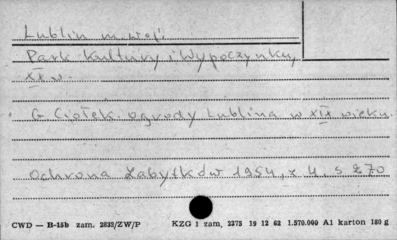 Lublin m. woj.
Park Kultury i Wypoczynku,
XX w.
G. Ciołek ogrody Lublina w XIX wieku.
Ochrona Zabytków 1954, z 4, s 270
CWD — B-15b zam. 2832/ZW/P KZG 1 zam. 2275 19 12 62 1.570.000 A1 karton 180 g